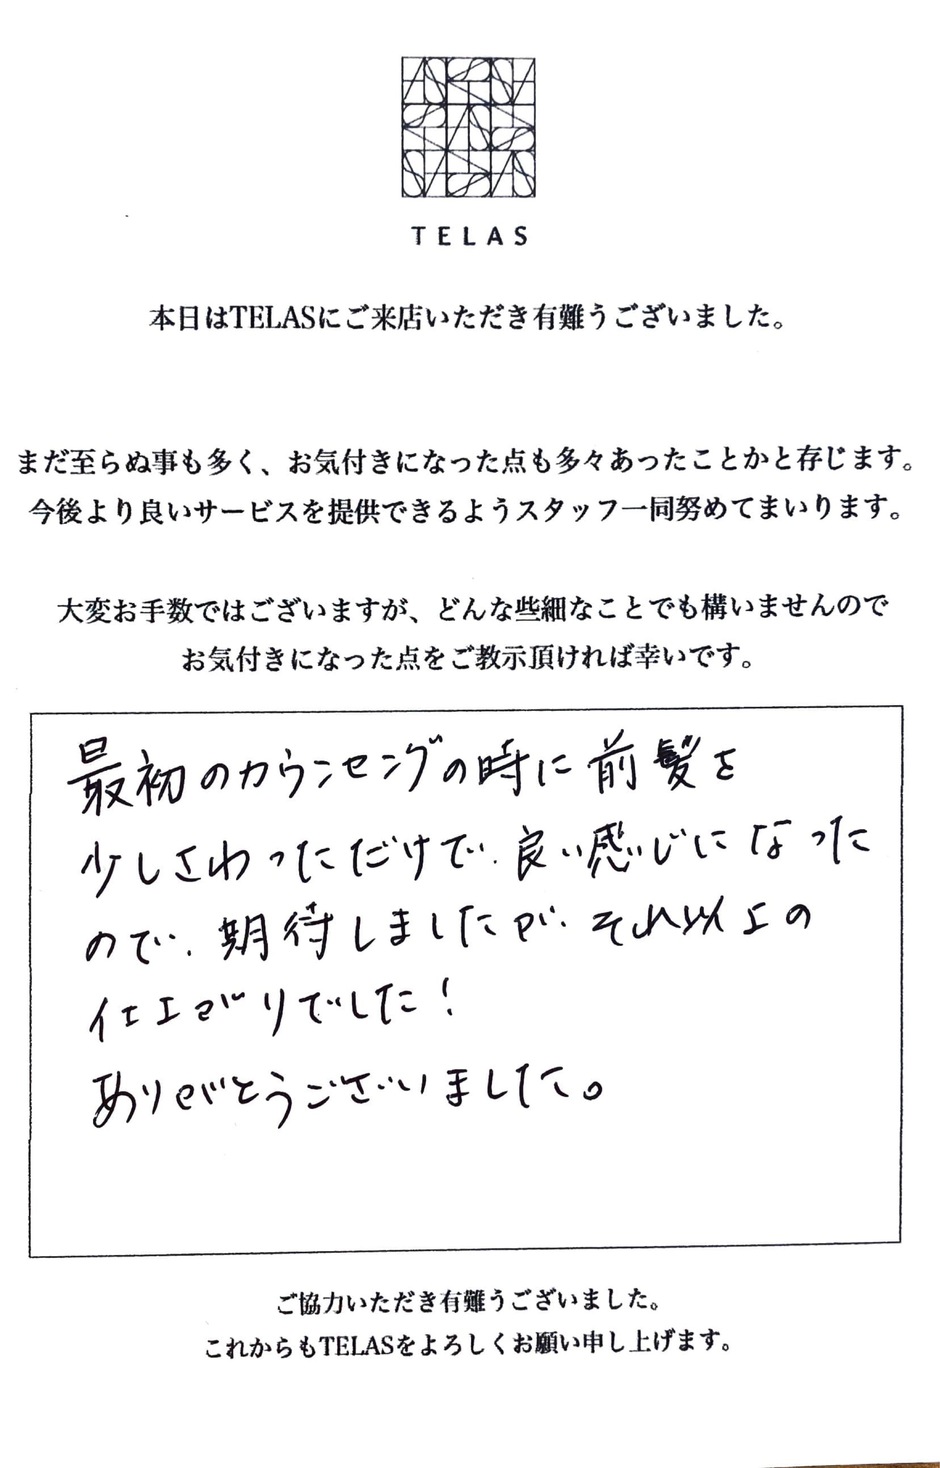 TELAS
本日はTELASにご来店いただき有難うございました。
まだ至らぬ事も多く、お気付きになった点も多々あったことかと存じます。
今後より良いサービスを提供できるようスタッフ一同努めてまいります。
大変お手数ではございますが、どんな些細なことでも構いませんので
お気付きになった点をご教示頂ければ幸いです。
最初のカウンセングの時に前髪を
少しさわっただけで、良い感じになった
ので、期待しましたが、それ以上の
仕上がりでした!
ありがとうございました。
ご協力いただき有難うございました。
これからもTELASをよろしくお願い申し上げます。